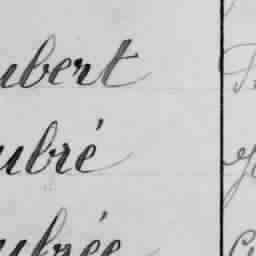 ubert
ubré
ubrée